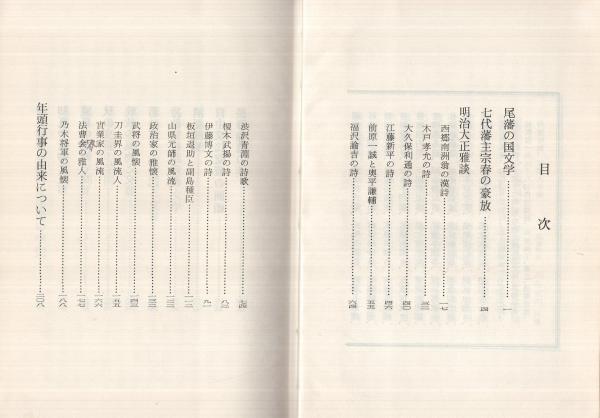 目次
尾藩の国文学…………一
七代藩主宗春の豪放…………四
明治大正雅談
西郷南洲翁の漢詩…………一七
木戸孝允の詩…………三一
大久保利通の詩…………四〇
江藤新平の詩…………四六
前原一誠と奥平謙輔…………五五
福沢諭吉の詩…………六四
渋沢青淵の詩歌…………七四
榎本武揚の詩…………八三
伊藤博文の詩…………九一
板垣退助と副島種臣…………一一三
山県元帥の風流…………一二三
政治家の雅懐…………一三三
武将の風懐…………一四三
刀圭界の風流人…………一五五
実業家の風流…………一六六
法曹会の雅人…………一七七
乃木将軍の風懐…………一八八
年頭行事の由来について…………二〇八